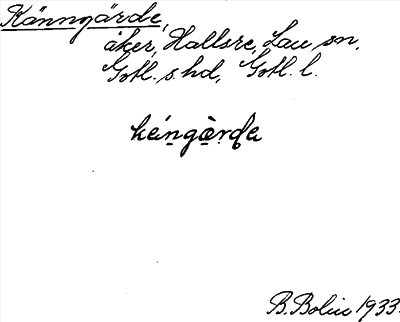 Känngärde,
åker, Hallsre, Lau sn,
Gotl. s. hd, Gotl. l.
B. Bolin 1933.